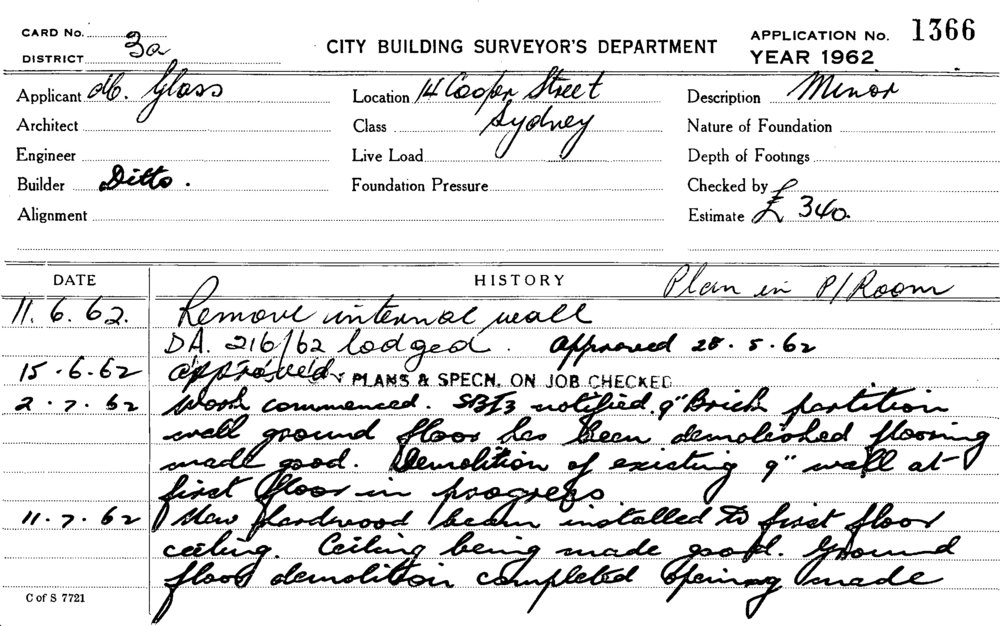 CARD No.
DISTRICT 3a
CITY BUILDING SURVEYOR'S DEPARTMENT
APPLICATION No. 1366
YEAR 1962
Applicant Glass
Location 14 Cooper Street
Description Minor
Architect
Class Sydney
Nature of Foundation
Engineer
Live Load
Depth of Footings
Builder Ditto.
Foundation Pressure
Checked by
Alignment
Estimate £ 340.
DATE
HISTORY
Plan in P/Room
11. 6. 62. Remove internal wall
DA. 216/62 lodged. Approved 28. 5. 62
15. 6. 62 approved PLANS & SPECN. ON JOB CHECKED
2. 7. 62 Work commenced. notified. 9" Brick partition
wall ground floor has been demolished flooring
made good. Demolition of existing 9" wall at
first floor in progress
11. 7. 62 New Hardwood beam installed to first floor
ceiling. Ceiling being made good. Ground
floor demolition completed opening made
C of S 7721